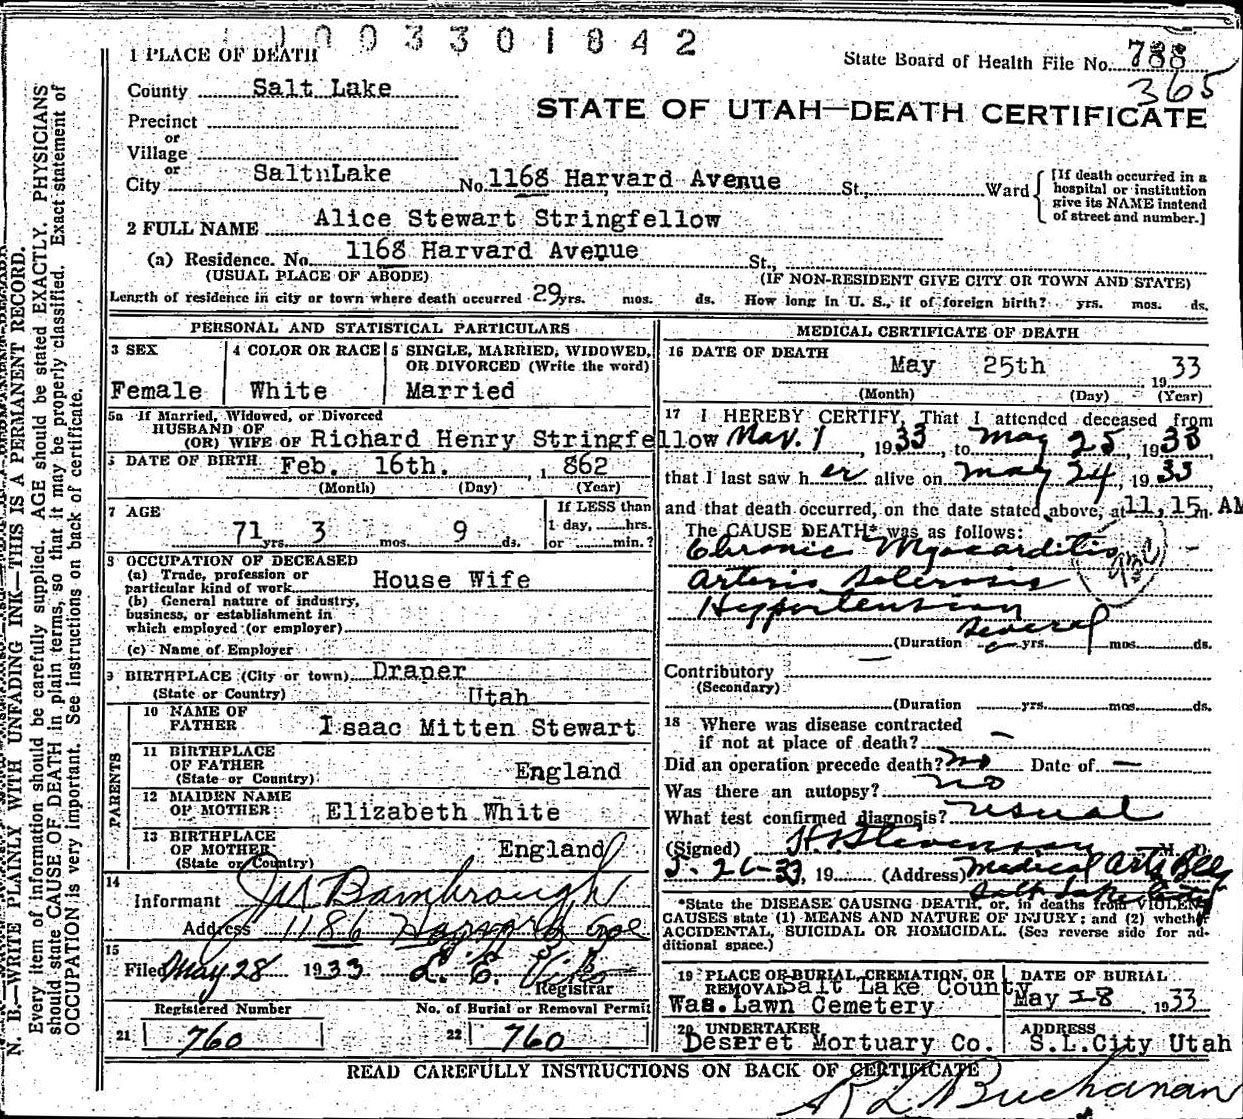 1003301842
1 PLACE OF DEATH
State Board of Health File No. 788
365
County Salt Lake
STATE OF UTAH—DEATH CERTIFICATE
Precinct
or
Village
or
City Salt Lake No. 1168 Harvard Avenue St., Ward
[If death occurred in a hospital or institution give its NAME instead of street and number.]
2 FULL NAME Alice Stewart Stringfellow
(a) Residence. No. 1168 Harvard Avenue St.,
(USUAL PLACE OF ABODE) (IF NON-RESIDENT GIVE CITY OR TOWN AND STATE)
Length of residence in city or town where death occurred 29 yrs. mos. ds. How long in U. S., if of foreign birth? yrs. mos. ds.
PERSONAL AND STATISTICAL PARTICULARS
3 SEX 4 COLOR OR RACE 5 SINGLE, MARRIED, WIDOWED,
OR DIVORCED (Write the word)
Female White Married
5a If Married, Widowed, or Divorced
HUSBAND OF
(OR) WIFE OF Richard Henry Stringfellow
6 DATE OF BIRTH Feb. 16th. , 1862
(Month) (Day) (Year)
7 AGE If LESS than
1 day, hrs.
71 yrs. 3 mos. 9 ds. or min.?
8 OCCUPATION OF DECEASED
(a) Trade, profession or
particular kind of work House Wife
(b) General nature of industry,
business, or establishment in
which employed (or employer)
(c) Name of Employer
9 BIRTHPLACE (City or town) Draper
(State or Country) Utah
PARENTS
10 NAME OF
FATHER Isaac Mitten Stewart
11 BIRTHPLACE
OF FATHER
(State or Country) England
12 MAIDEN NAME
OF MOTHER Elizabeth White
13 BIRTHPLACE
OF MOTHER England
(State or Country)
14
Informant J M Bambrough
Address 1186 Harvard Ave
15
Filed May 28 1933 L. E.
Registrar
Registered Number No. of Burial or Removal Permit
21 760 22 760
MEDICAL CERTIFICATE OF DEATH
16 DATE OF DEATH
May 25th 1933
(Month) (Day) (Year)
17 I HEREBY CERTIFY, That I attended deceased from
Mar. 1, 1933, to May 25, 1933
that I last saw her alive on May 24, 1933
and that death occurred, on the date stated above, at 11,15 m. AM
The CAUSE DEATH* was as follows:
Chronic Myocarditis
Arterio Sclerosis
Hypertension
several
(Duration yrs. mos. ds.
Contributory
(Secondary)
(Duration yrs. mos. ds.
18 Where was disease contracted
if not at place of death? —
Did an operation precede death? no Date of —
Was there an autopsy? no
What test confirmed diagnosis? usual
(Signed) H. Stevenson M. D.
5-26-33, 19 (Address) Medical Arts Bldg
Salt Lake City
*State the DISEASE CAUSING DEATH, or, in deaths from VIOLENT
CAUSES state (1) MEANS AND NATURE OF INJURY; and (2) whether
ACCIDENTAL, SUICIDAL OR HOMICIDAL. (See reverse side for ad-
ditional space.)
19 PLACE OF BURIAL, CREMATION, OR DATE OF BURIAL
REMOVAL Salt Lake County
Was. Lawn Cemetery May 28 1933
20 UNDERTAKER ADDRESS
Deseret Mortuary Co. S.L.City Utah
READ CAREFULLY INSTRUCTIONS ON BACK OF CERTIFICATE
R L Buchanan
N. B.—WRITE PLAINLY WITH UNFADING INK—THIS IS A PERMANENT RECORD.
Every item of information should be carefully supplied. AGE should be stated EXACTLY. PHYSICIANS
should state CAUSE OF DEATH in plain terms, so that it may be properly classified. Exact statement of
OCCUPATION is very important. See instructions on back of certificate.